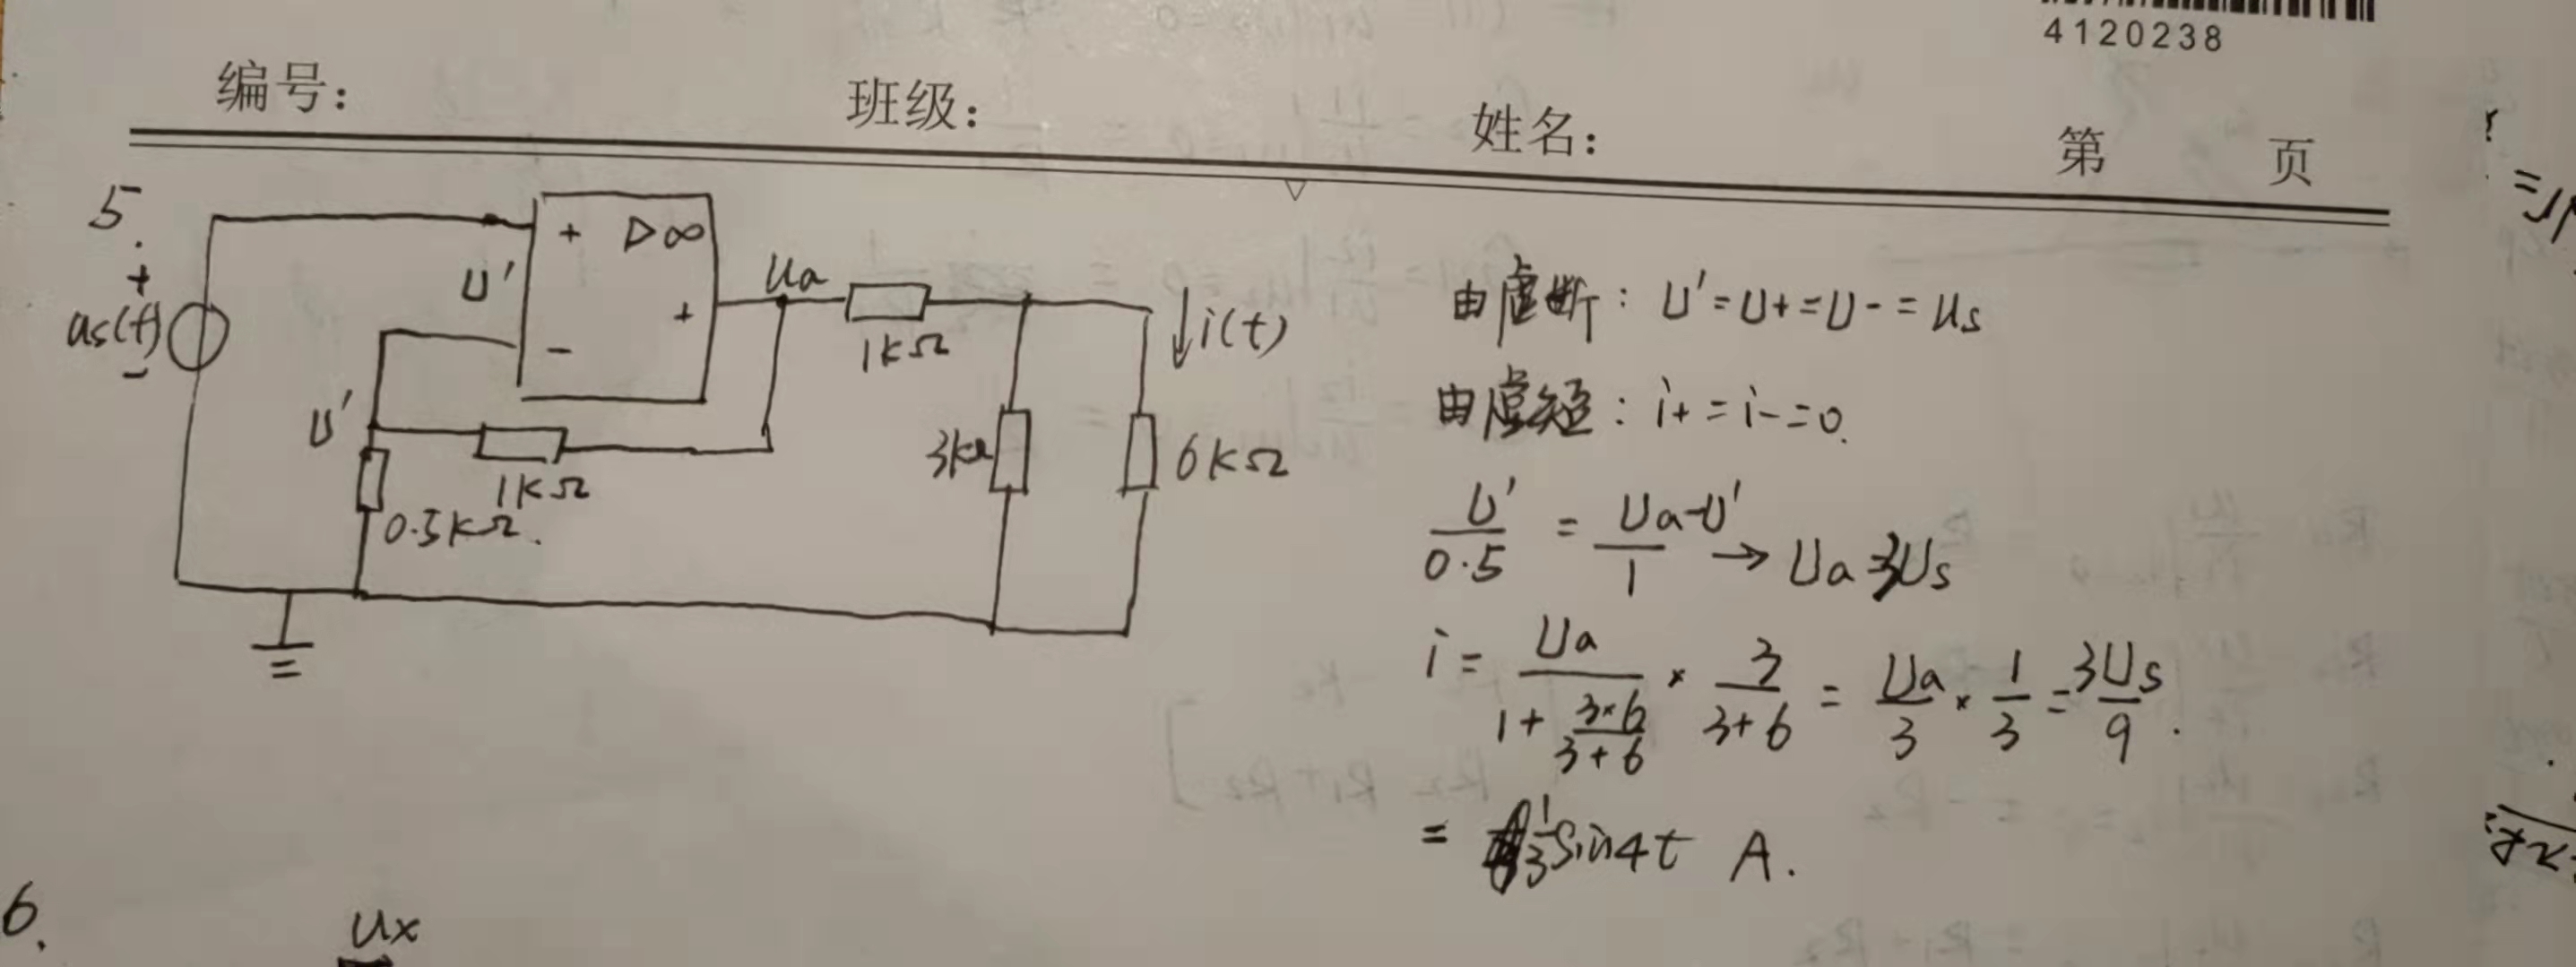 4120238
编号：
班级：
姓名：
第 页
5.
+
us(t)
-
U'
+ ▷∞
+
-
ua
1KΩ
i(t)
U'
1KΩ
0.5KΩ.
3KΩ
6KΩ
由虚断：U'=U+=U-=Us
由虚短：i+=i-=0.
U'/0.5 = Ua-U'/1 → Ua=3Us
i = Ua/(1+3×6/(3+6)) × 3/(3+6) = Ua/3 × 1/3 = 3Us/9.
= 1/3 Sin4t A.
6.
Ux